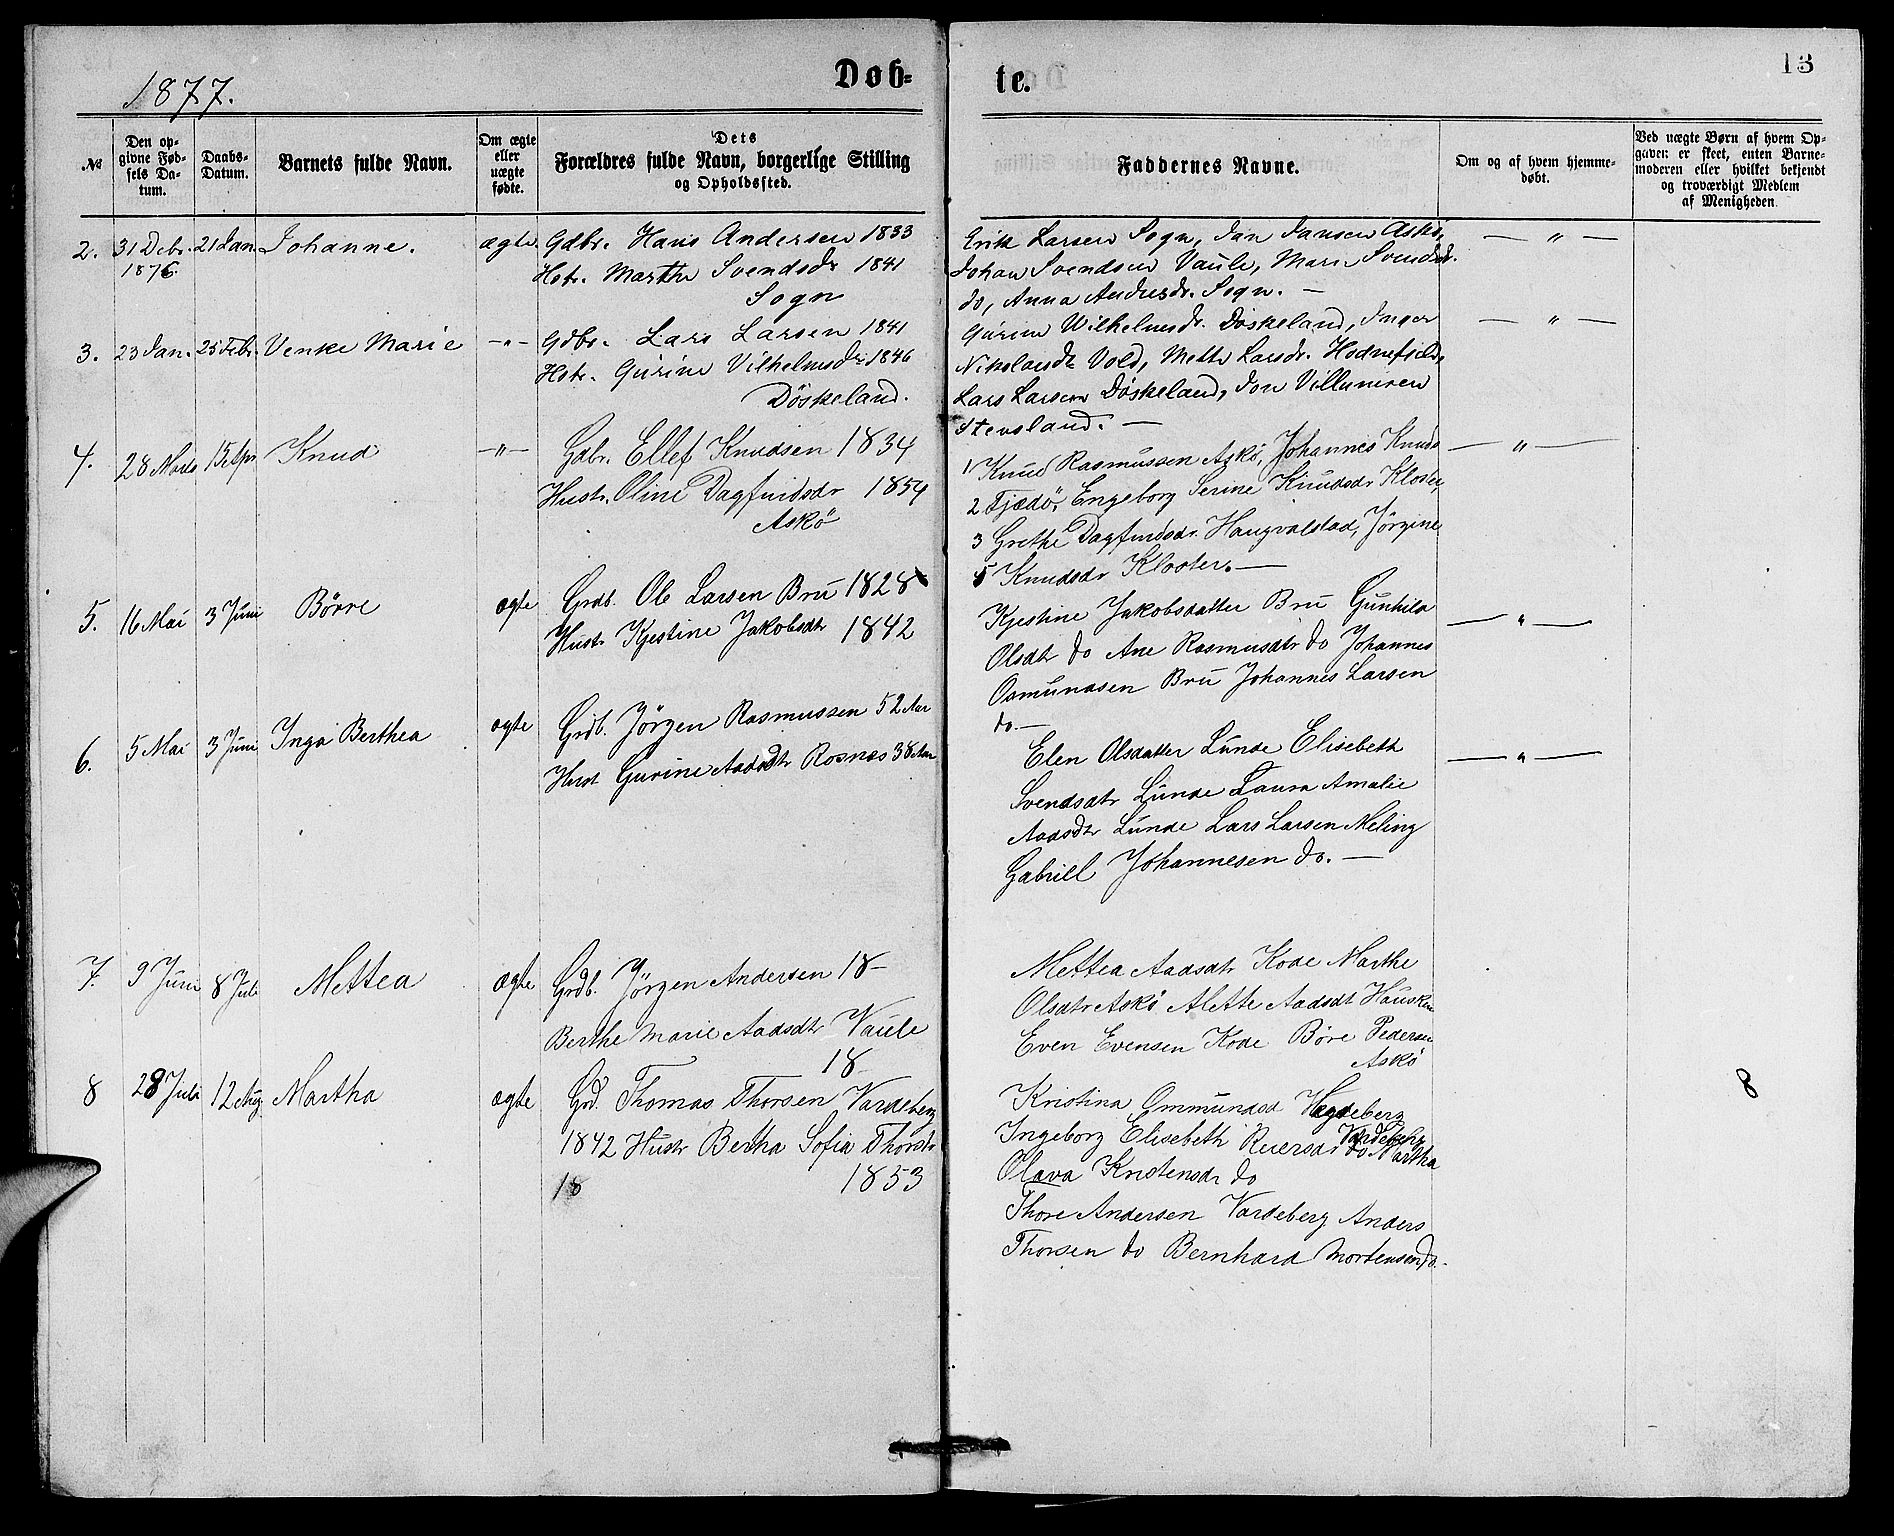 1877.
Døb-
te.
13
№
Den op-
givne Fød-
sels Da-
tum.
Daabs-
Datum.
Barnets fulde Navn.
Om ægte
eller
uægte
fødte.
Dets
Forældres fulde Navn, borgerlige Stilling
og Opholdssted.
Faddernes Navne.
Om og af hvem hjemme-
døbt.
Ved uægte Børn af hvem Op-
gaven er skeet, enten Barne-
moderen eller hvilket bekjendt
og troværdigt Medlem
af Menigheden.
2. 31 Debr. 21 Jan. Johanne. ægte. Gdbr. Hans Andersen 1833
1876. Hstr. Marthe Svendsdr 1841
Sogn
Erik Larsen Sogn, Jan Jansen Askø,
Johan Svendsen Vaule, Maren Svendsdr.
do, Anna Andersdr. Sogn. —
— " —
3. 23 Jan. 25 Febr. Venke Marie —"— Gdbr. Lars Larsen 1841
Hstr. Gurine Vilhelmsdr 1846
Døskeland.
Gurine Wilhelmsdr. Døskeland, Inger
Nikolaisdr Vold, Mette Larsdr. Hodnefjeld,
Lars Larsen Døskeland, Jon Villumsen
Stensland. —
— " —
4. 28 Marts 15 Apr Knud —"— Gdbr. Ellef Knudsen 1834
Hustr. Oline Dagfindsdr 1854
Askø
1 Knud Rasmussen Askø, Johannes Knuds
2 Fjædø, Engeborg Serine Knudsdr Kloster,
3 Grethe Dagfindsdr. Haugvalstad, Jørgine
5 Knudsdr Kloster. —
— " —
5. 16 Mai 3 Juni Børre ægte Grdb. Ole Larsen Bru 1828
Hustr Kjestine Jakobsdtr 1842
Kjestine Jakobsdatter Bru Gunhild
Olsdtr do Ane Rasmusdtr do Johannes
Osmundsen Bru Johannes Larsen
do —
— " —
6. 5 Mai 3 Juni Inga Berthea ægte Grdb. Jørgen Rasmussen 52 Aar
Hust Gurine Aadsdtr Rosnæs 38 Aar
Elen Olsdatter Lunde Elisebeth
Svendsdtr Lunde Laura Amalie
Aadsdtr Lunde Lars Larsen Meling
Gabriel Johannesen do. —
— " —
7. 9 Juni 8 Juli Mettea ægte Grdb. Jørgen Andersen 18-
Berthe Marie Aadsdtr Vaule
18
Mettea Aadsdtr Kode Marthe
Olsdtr Askø Alette Aadsdt Hausken
Even Evensen Kode Børe Pedersen
Askø
8 28 Juli 12 Aug Martha ægte Grd. Thomas Thorsen Vardeberg
1842 Hustr Bertha Sofia Thorsdtr
18 1853
Kristina Ommundsd Hegdeberg
Ingeborg Elisebeth Reiersd Vardeberg do Martha
Olava Kristensdr do
Thore Andersen Vardeberg Anders
Thorsen do Bernhard Mortensen do.
8